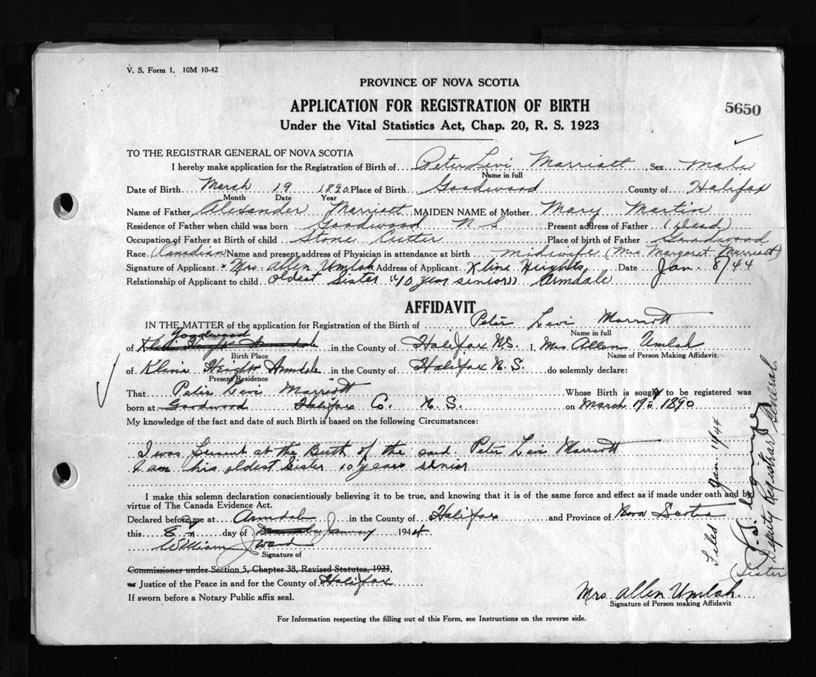 V. S. Form 1. 10M 10-42
PROVINCE OF NOVA SCOTIA
APPLICATION FOR REGISTRATION OF BIRTH
5650
Under the Vital Statistics Act, Chap. 20, R. S. 1923
TO THE REGISTRAR GENERAL OF NOVA SCOTIA
I hereby make application for the Registration of Birth of Peter Levi Marriott Sex Male
Name in full
Date of Birth March 19 1890 Place of Birth Goodwood County of Halifax
Month Date Year
Name of Father Alexander Marriott MAIDEN NAME of Mother Mary Martin
Residence of Father when child was born Goodwood N S Present address of Father (Dead)
Occupation of Father at Birth of child Stone Cutter Place of birth of Father Goodwood
Race Canadian Name and present address of Physician in attendance at birth midwife (Mrs Margaret Marriott)
Signature of Applicant Mrs. Allen Umlah Address of Applicant Kline Heights, Date Jan. 8/44
Relationship of Applicant to child oldest sister (10 years senior) Armdale
AFFIDAVIT
IN THE MATTER of the application for Registration of the Birth of Peter Levi Marriott
Name in full
Goodwood
of Kline Heights Armdale in the County of Halifax N.S. I, Mrs Allen Umlah
Birth Place Name of Person Making Affidavit
of Kline Heights Armdale in the County of Halifax N.S. do solemnly declare:
Present Residence
That Peter Levi Marriott Whose Birth is sought to be registered was
born at Goodwood Halifax Co. N.S. on March 19th 1890
My knowledge of the fact and date of such Birth is based on the following Circumstances:
I was present at the Birth of the said Peter Levi Marriott
I am his oldest sister 10 years senior
I make this solemn declaration conscientiously believing it to be true, and knowing that it is of the same force and effect as if made under oath and by
virtue of The Canada Evidence Act.
Declared before me at Armdale in the County of Halifax and Province of Nova Scotia
this 8th day of January 1944
William J Ward
Signature of
Commissioner under Section 5, Chapter 38, Revised Statutes, 1923,
or Justice of the Peace in and for the County of Halifax
If sworn before a Notary Public affix seal.
Mrs. Allen Umlah
Signature of Person making Affidavit
(Sister
For Information respecting the filling out of this Form, see Instructions on the reverse side.
Filed Jan 19/44
Deputy Registrar General